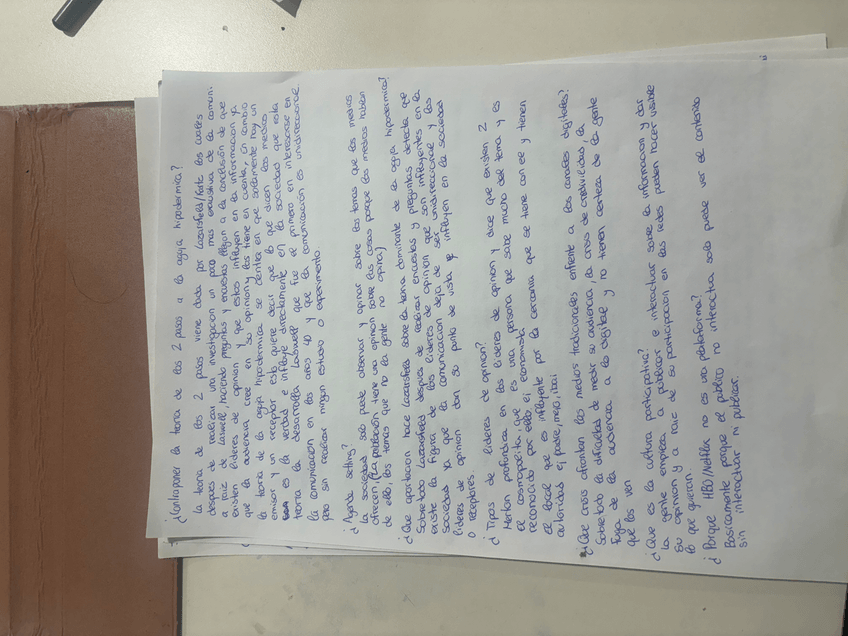 ¿Contraponer la teoria de los 2 pasos a la aguja hipodermica?
La teoria de los 2 pasos viene dada por Lazarsfeld/Katz los cuales
despues de realizar una investigacion un poco mas exaustiva de la comuni.
a raiz de Laswell, haciendo preguntas y encuestas llegan a la conclusion de que
existen lideres de opinion y que estos influyen en la informacion ya
que la audiencia cree en su opinion y los tiene en cuenta, en cambio
la teoria de la aguja hipodermica se centra en que solamente hay un
emisor y un receptor esto quiere decir que lo que dicen los medios
es la verdad e influye directamente en la sociedad que esta
teoria la desarrolla Lasswell que fue el primero en interesarse en
la comunicación en los años 40 y que la comunicación es unidireccional
pero sin realizar ningun estudio o experimento.
¿Agenda setting?
La sociedad solo puede observar y opinar sobre los temas que los medios
ofrecen, (La población tiene una opinion sobre las cosas porque los medios hablan
de ello, los temas que no la gente no opina)
¿Que aportacion hace Lazarsfeld sobre la teoria dominante de la aguja hipodermica?
Sobre todo Lazarsfeld despues de realizar encuestas y preguntas detecta que
existe la figura de los lideres de opinion que son influyentes en la
sociedad ya que la comunicacion deja de ser unidireccional y los
lideres de opinion dan su punto de vista e influyen en la sociedad
o receptores.
¿Tipos de lideres de opinion?
Merton profundiza en los lideres de opinion y dice que existen 2
el cosmopolita: que es una persona que sabe mucho del tema y es
reconocido por ello ej, economista
el local que es influyente por la cercania que se tiene con el y tienen
autoridad ej, padre, mario, ibai
¿Que crisis afrontan los medios tradicionales enfrente a los canales digitales?
Sobre todo la dificultad de medir su audiencia, la crisis de credivilidad, la
fuga de la audiencia a lo digital y no tienen certeza de la gente
que los ven
¿Que es la cultura participativa?
la gente empieza a publicar e interactuar sobre la informacion y dar
su opinion y a raiz de su participacion en las redes pueden hacer visible
lo que quieran.
¿Porque HBO/Netflix no es una plataforma?
Basicamente porque el publico no interactua solo puede ver el contenido
sin interactuar ni publicar.